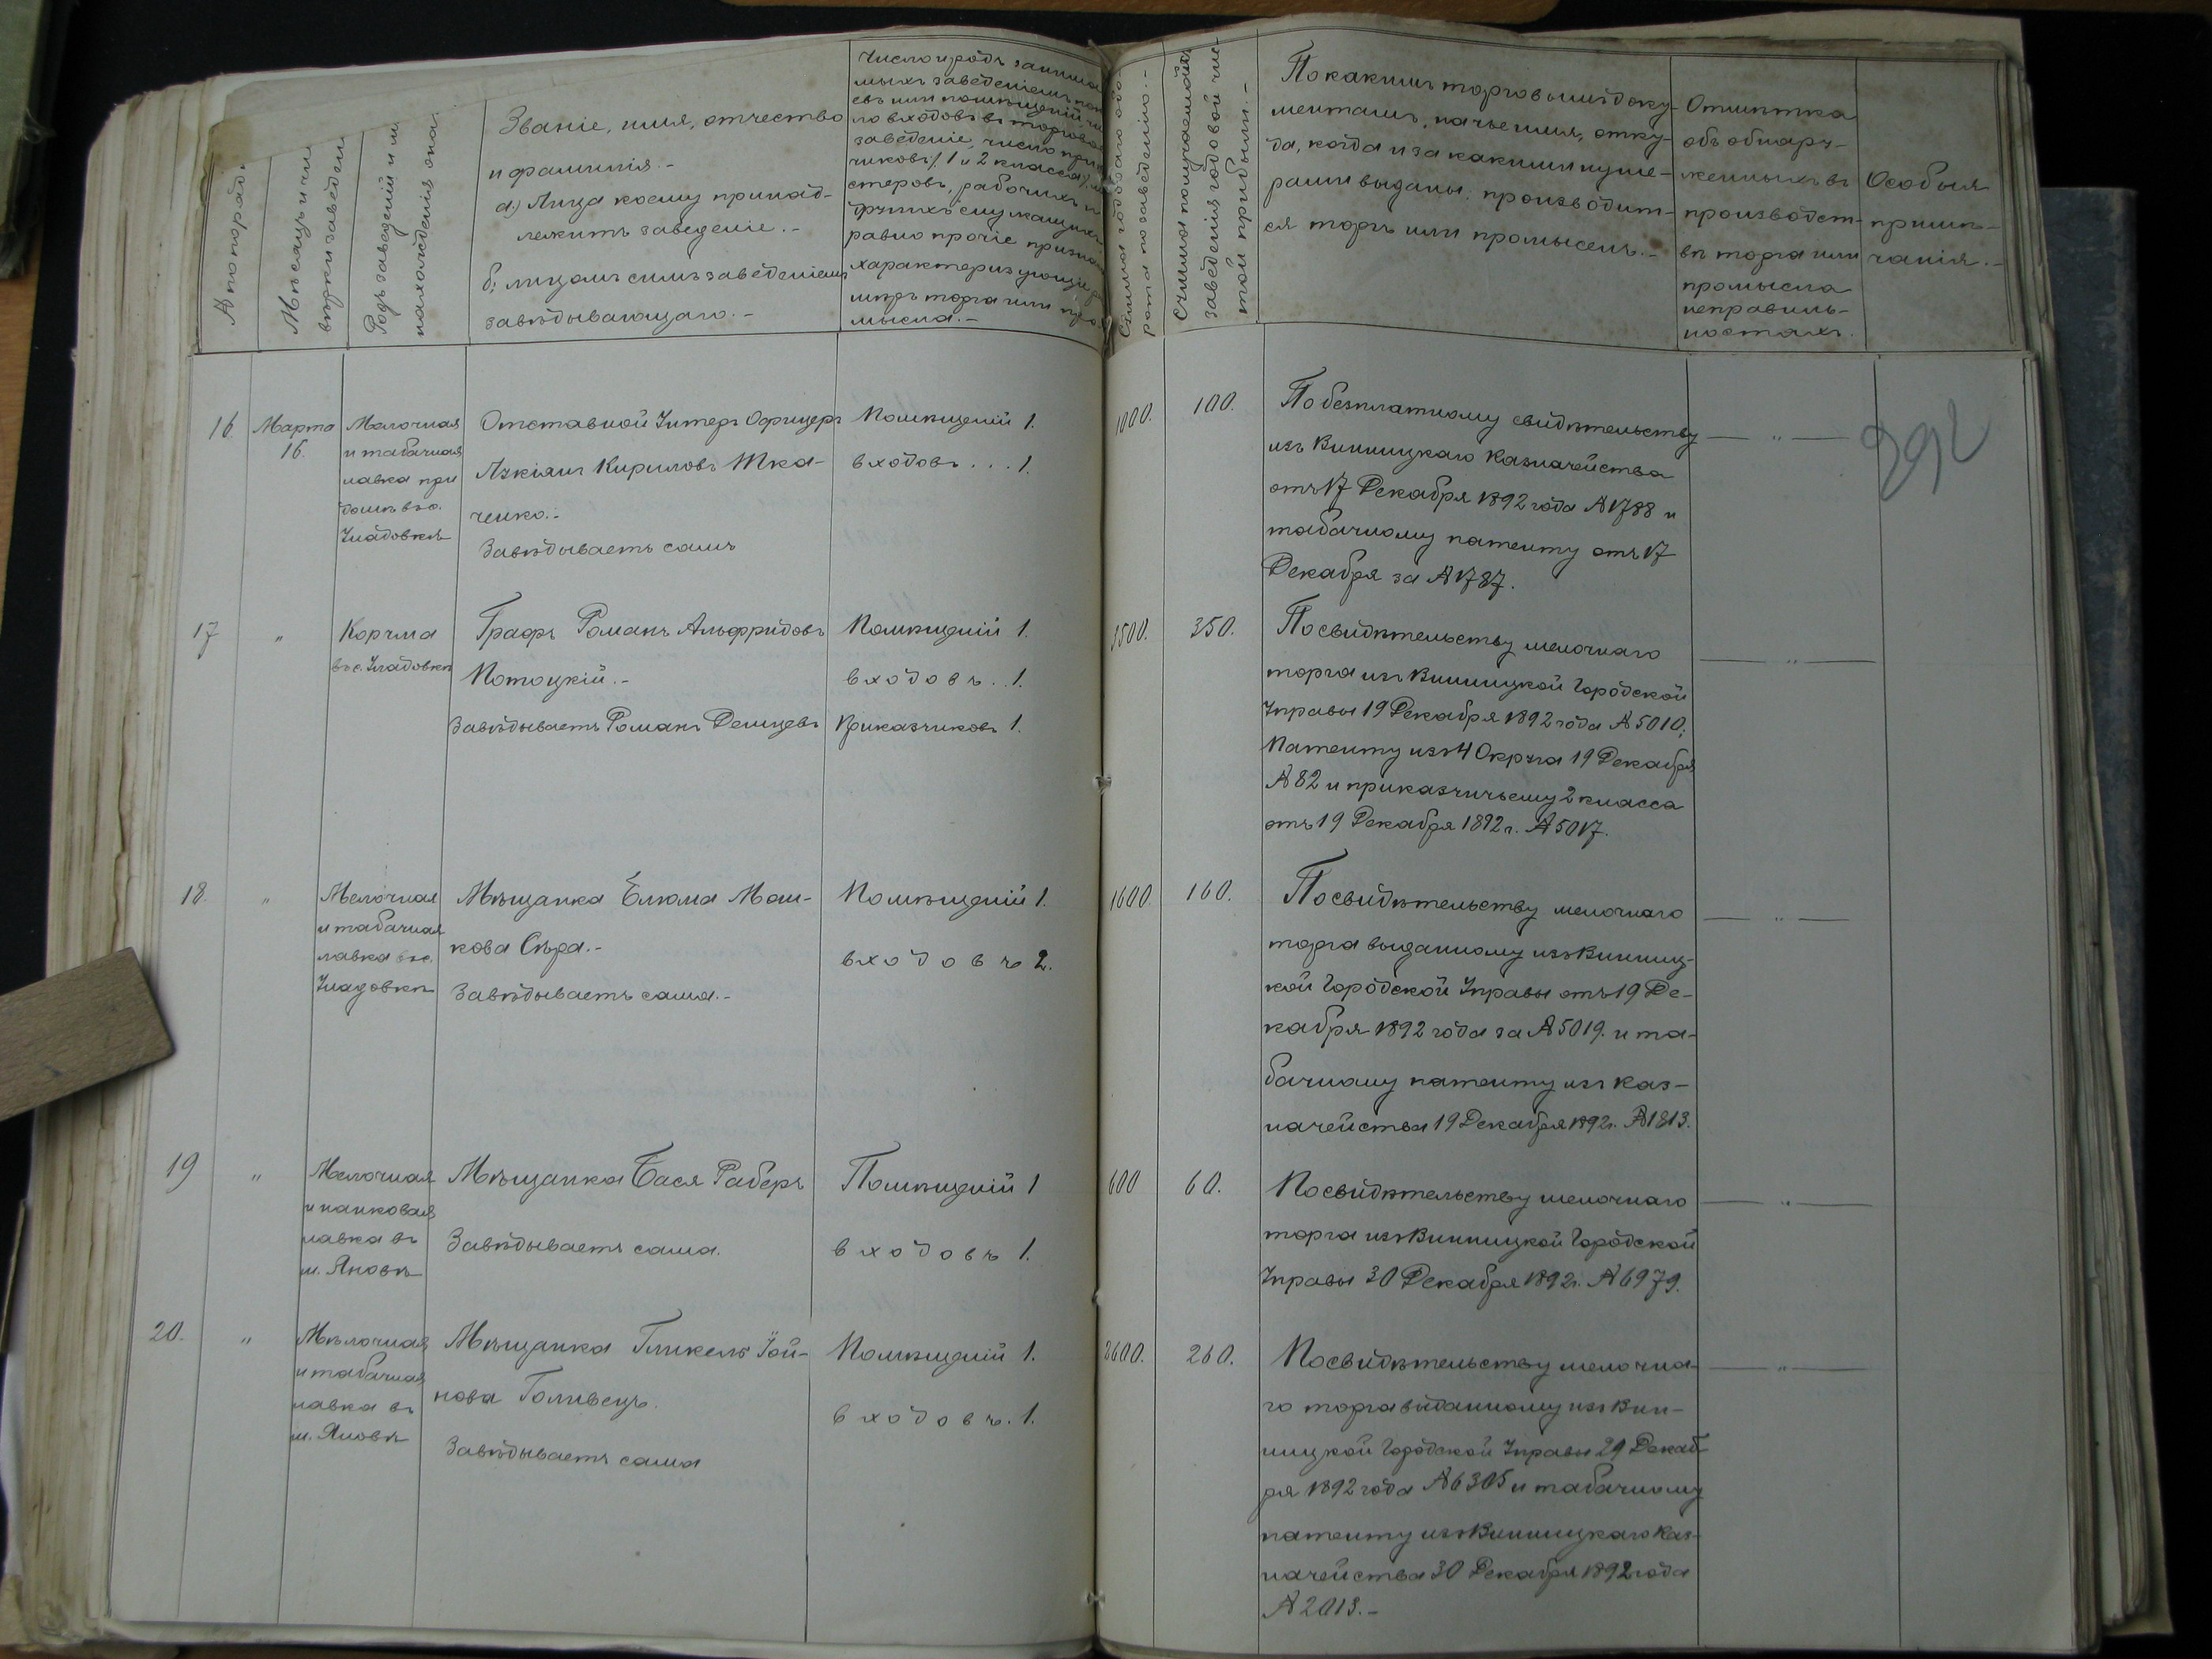 № по порядк
Мѣсяцъ и чи
вѣрки заведен
Родъ заведенiй и м
нахожденiя она
Званiе, имя, отчество
и фамилiя.-
а) Лица коему принад-
лежитъ заведенiе.-
б; лицомъ симъ заведенiемъ
завѣдывающаго.-
Число и родъ занима
мыхъ заведенiемъ по
евъ или помѣщенiй чи
ло входовъ въ торгово
заведенiе, число при
чиковъ / 1 и 2 класса),
стеровъ, рабочихъ и
другихъ служащихъ
равно прочiе призна
характеризующiе
мѣръ торга или про
мысла.-
Сумма годоваго обо-
рота по заведенiю.-
Сумма получаемой
заведенiя годовой чис-
той прибыли.-
По какимъ торговымъ доку-
ментамъ, на чье имя, отку-
да, когда и за какими нуме-
рами выданы. производит-
ся торгъ или промыселъ.-
Отмѣтка
объ обнару-
женныхъ въ
производст-
вѣ торга или
промысла
неправиль-
ностахъ.
Особыя
примѣ-
чанiя.-
292
16.
Марта
16.
Мелочная
и табачная
лавка при
домѣ въ с.
Уладовкѣ
Отставной Унтеръ Офицеръ
Кириловъ Тка-
ченко.-
Завѣдываетъ самъ
Помѣщенiй 1.
входовъ . . . 1.
1000.
100.
По безплатному свидѣтельству
изъ Винницкаго Казначейства
отъ 17 Декабря 1892 года № 1788 и
табачному патенту отъ 17
Декабря за № 1787.
— „ —
17
„
Корчма
въ с. Уладовкѣ
Графъ Романъ Альфридовъ
Потоцкiй.-
Завѣдываетъ Романъ Демцевъ
Помѣщенiй 1.
входовъ . . 1.
Приказчиковъ 1.
3500.
350.
По свидѣтельству мелочнаго
торга изъ Винницкой Городской
Управы 19 Декабря 1892 года № 5010;
Патенту изъ 4 Округа 19 Декабря
№ 82 и приказчичьему 2 класса
отъ 19 Декабря 1892 г. № 5017.
— „ —
18.
„
Мелочная
и табачная
лавка въ с.
Уладовкѣ
Мѣщанка Елюма Мош-
кова Сѣра.-
Завѣдываетъ сама.-
Помѣщенiй 1.
входовъ 2.
1600.
160.
По свидѣтельству мелочнаго
торга выданному изъ Винниц-
кой Городской Управы отъ 19 Де-
кабря 1892 года за № 5019. и та-
бачному патенту изъ Каз-
начейства 19 Декабря 1892 г. № 1813.
— „ —
19
„
Мелочная
и панковая
лавка въ
м. Яновѣ
Мѣщанка Бася Раберъ
Завѣдываетъ сама.
Помѣщенiй 1
входовъ 1.
600
60.
По свидѣтельству мелочнаго
торга изъ Винницкой Городской
Управы 30 Декабря 1892 г. № 6979.
— „ —
20.
„
Мѣлочная
и табачная
лавка въ
м. Яновѣ
Мѣщанка Гликель Iой-
нова Голивецъ.
Завѣдываетъ сама
Помѣщенiй 1.
входовъ. 1.
2600.
260.
По свидѣтельству мелочна-
го торга виданному изъ Вин-
ницкой Городской Управы 29 Декаб-
ря 1892 года № 6305 и табачному
патенту изъ Винницкаго Каз-
начейства 30 Декабря 1892 года
№ 2013.-
— „ —